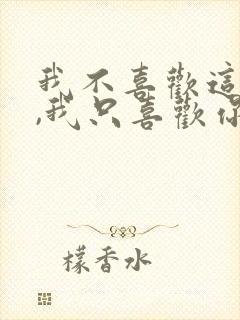 我不喜歡這
,我只喜歡你
檬香水